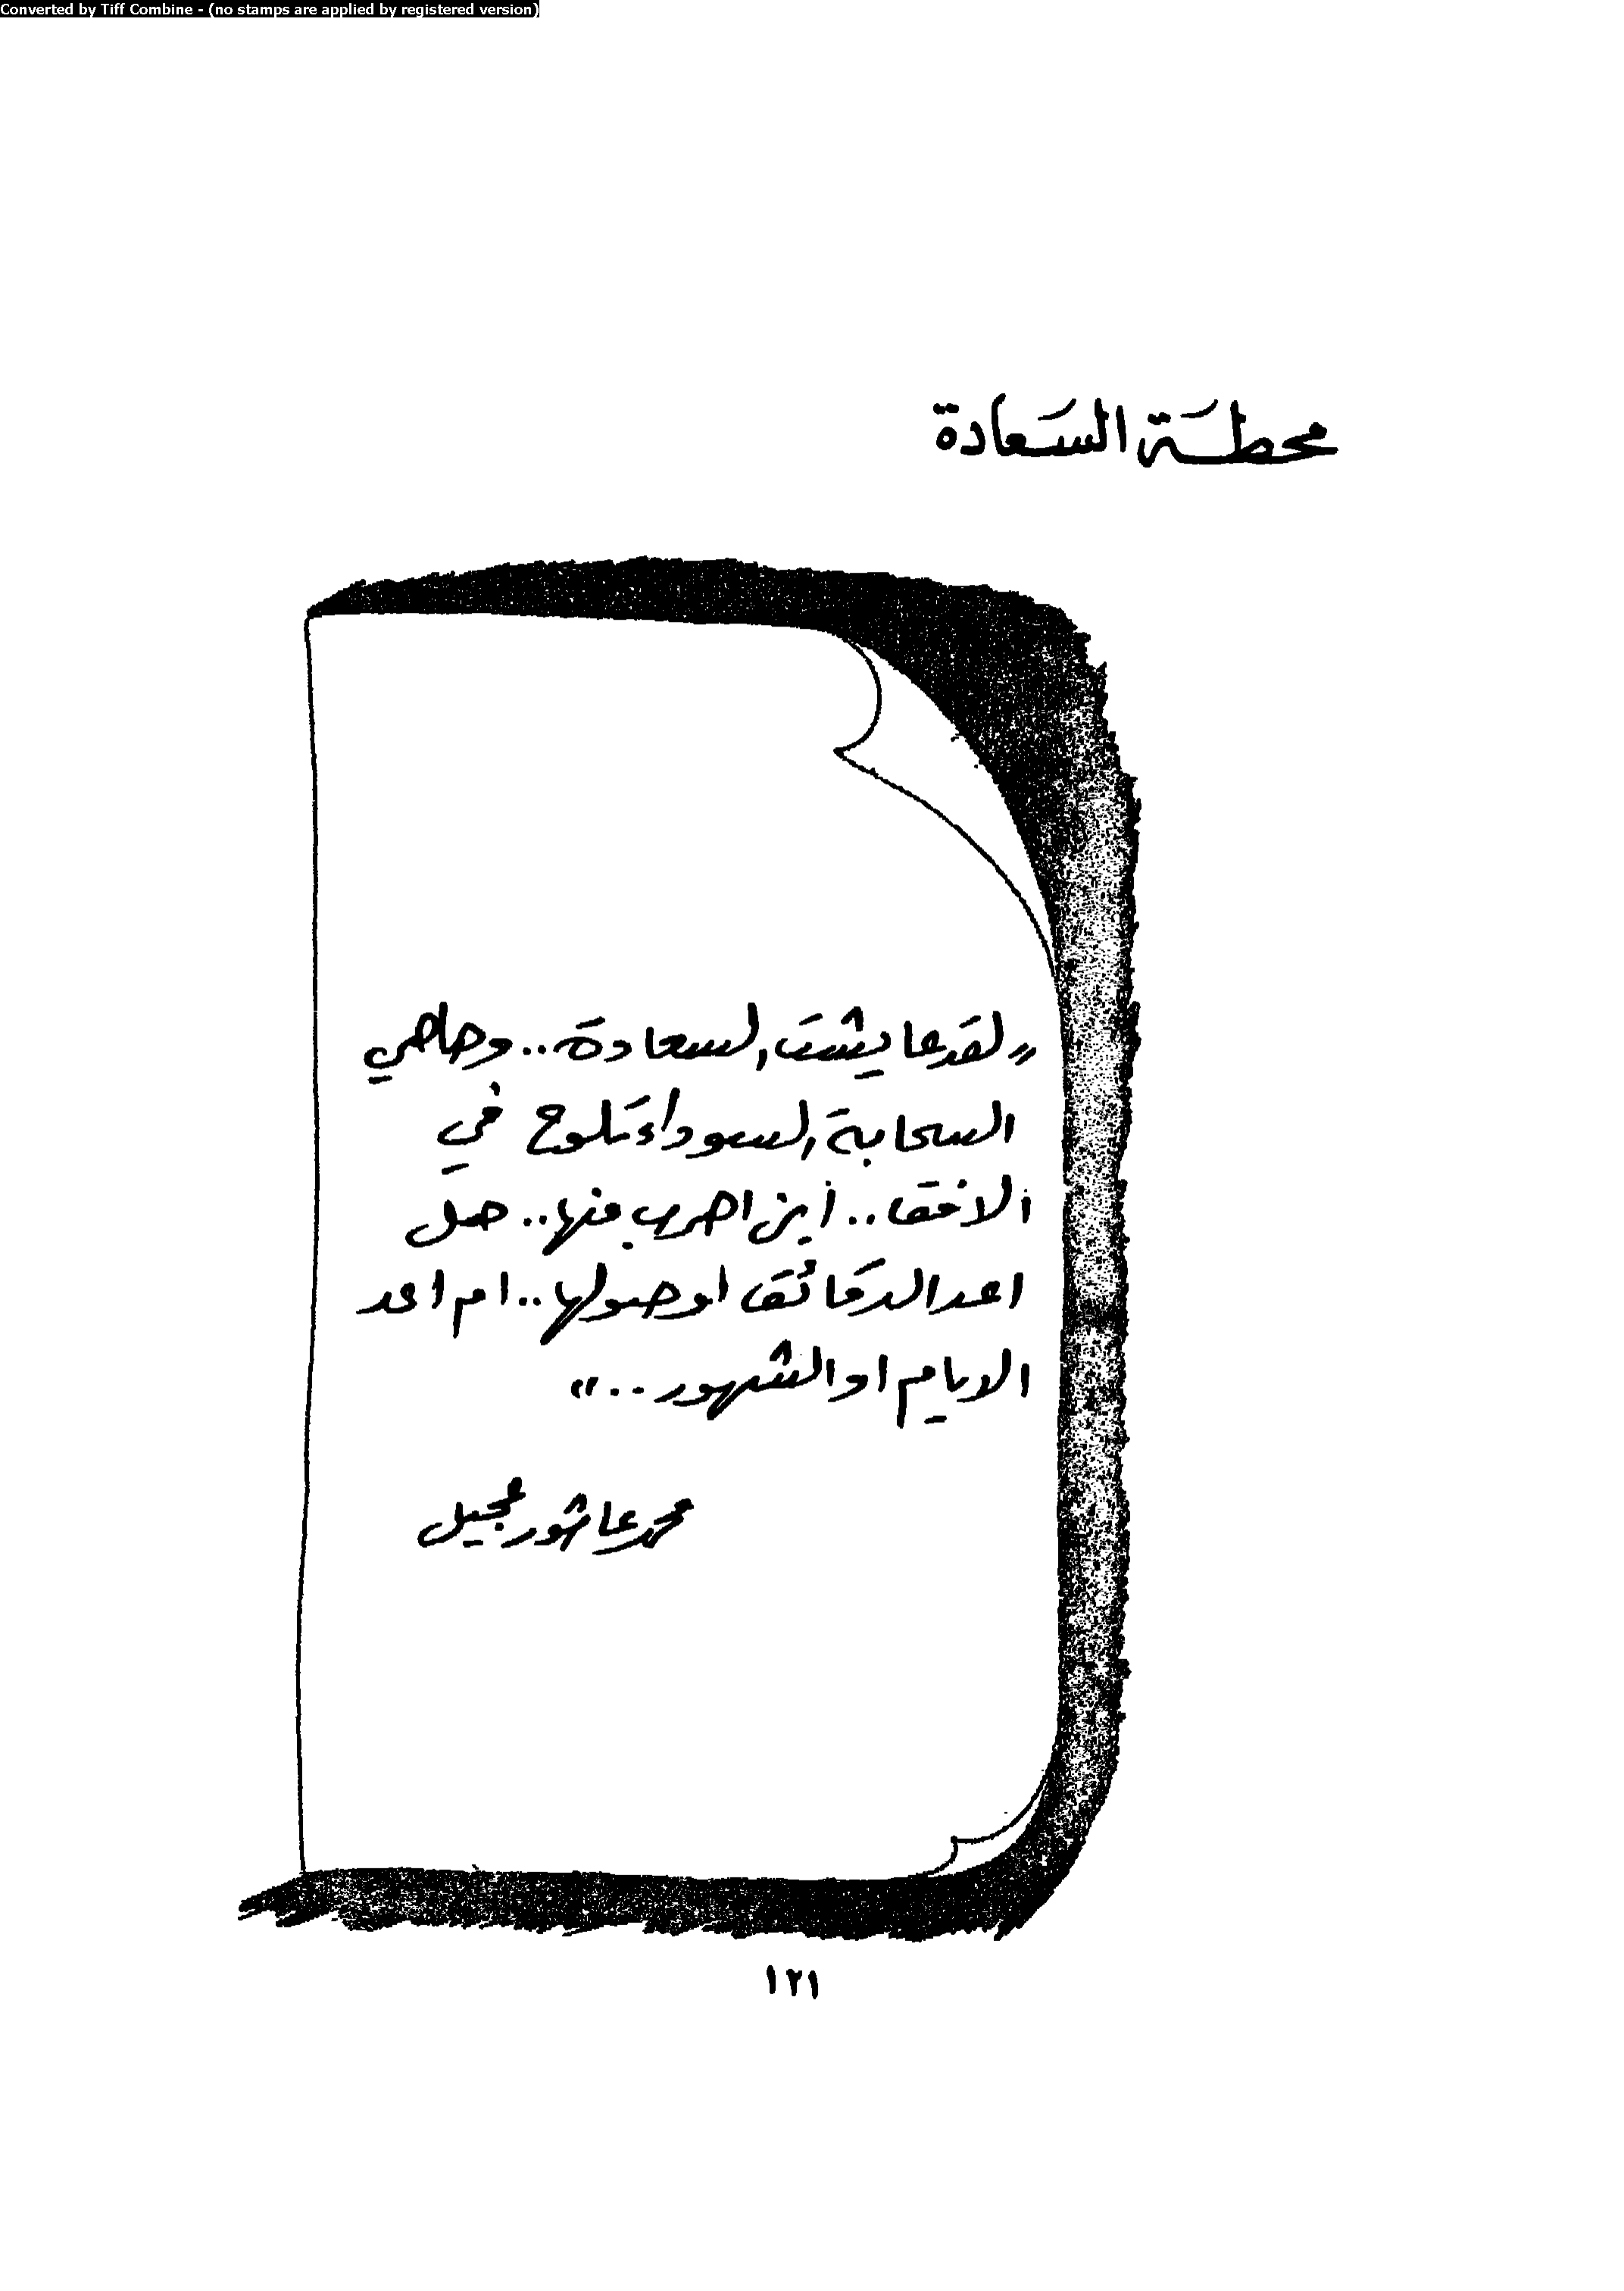 Converted by Tiff Combine - (no stamps are applied by registered version)
محطة السعادة
«لقد عايشت السعادة.. وها هي
السحابة السوداء تلوح في
الافق.. أين اهرب منها.. هل
اعد الدقائق لوصولها.. ام اعد
الايام او الشهور..»
محمد عاشور عجيل
١٢١